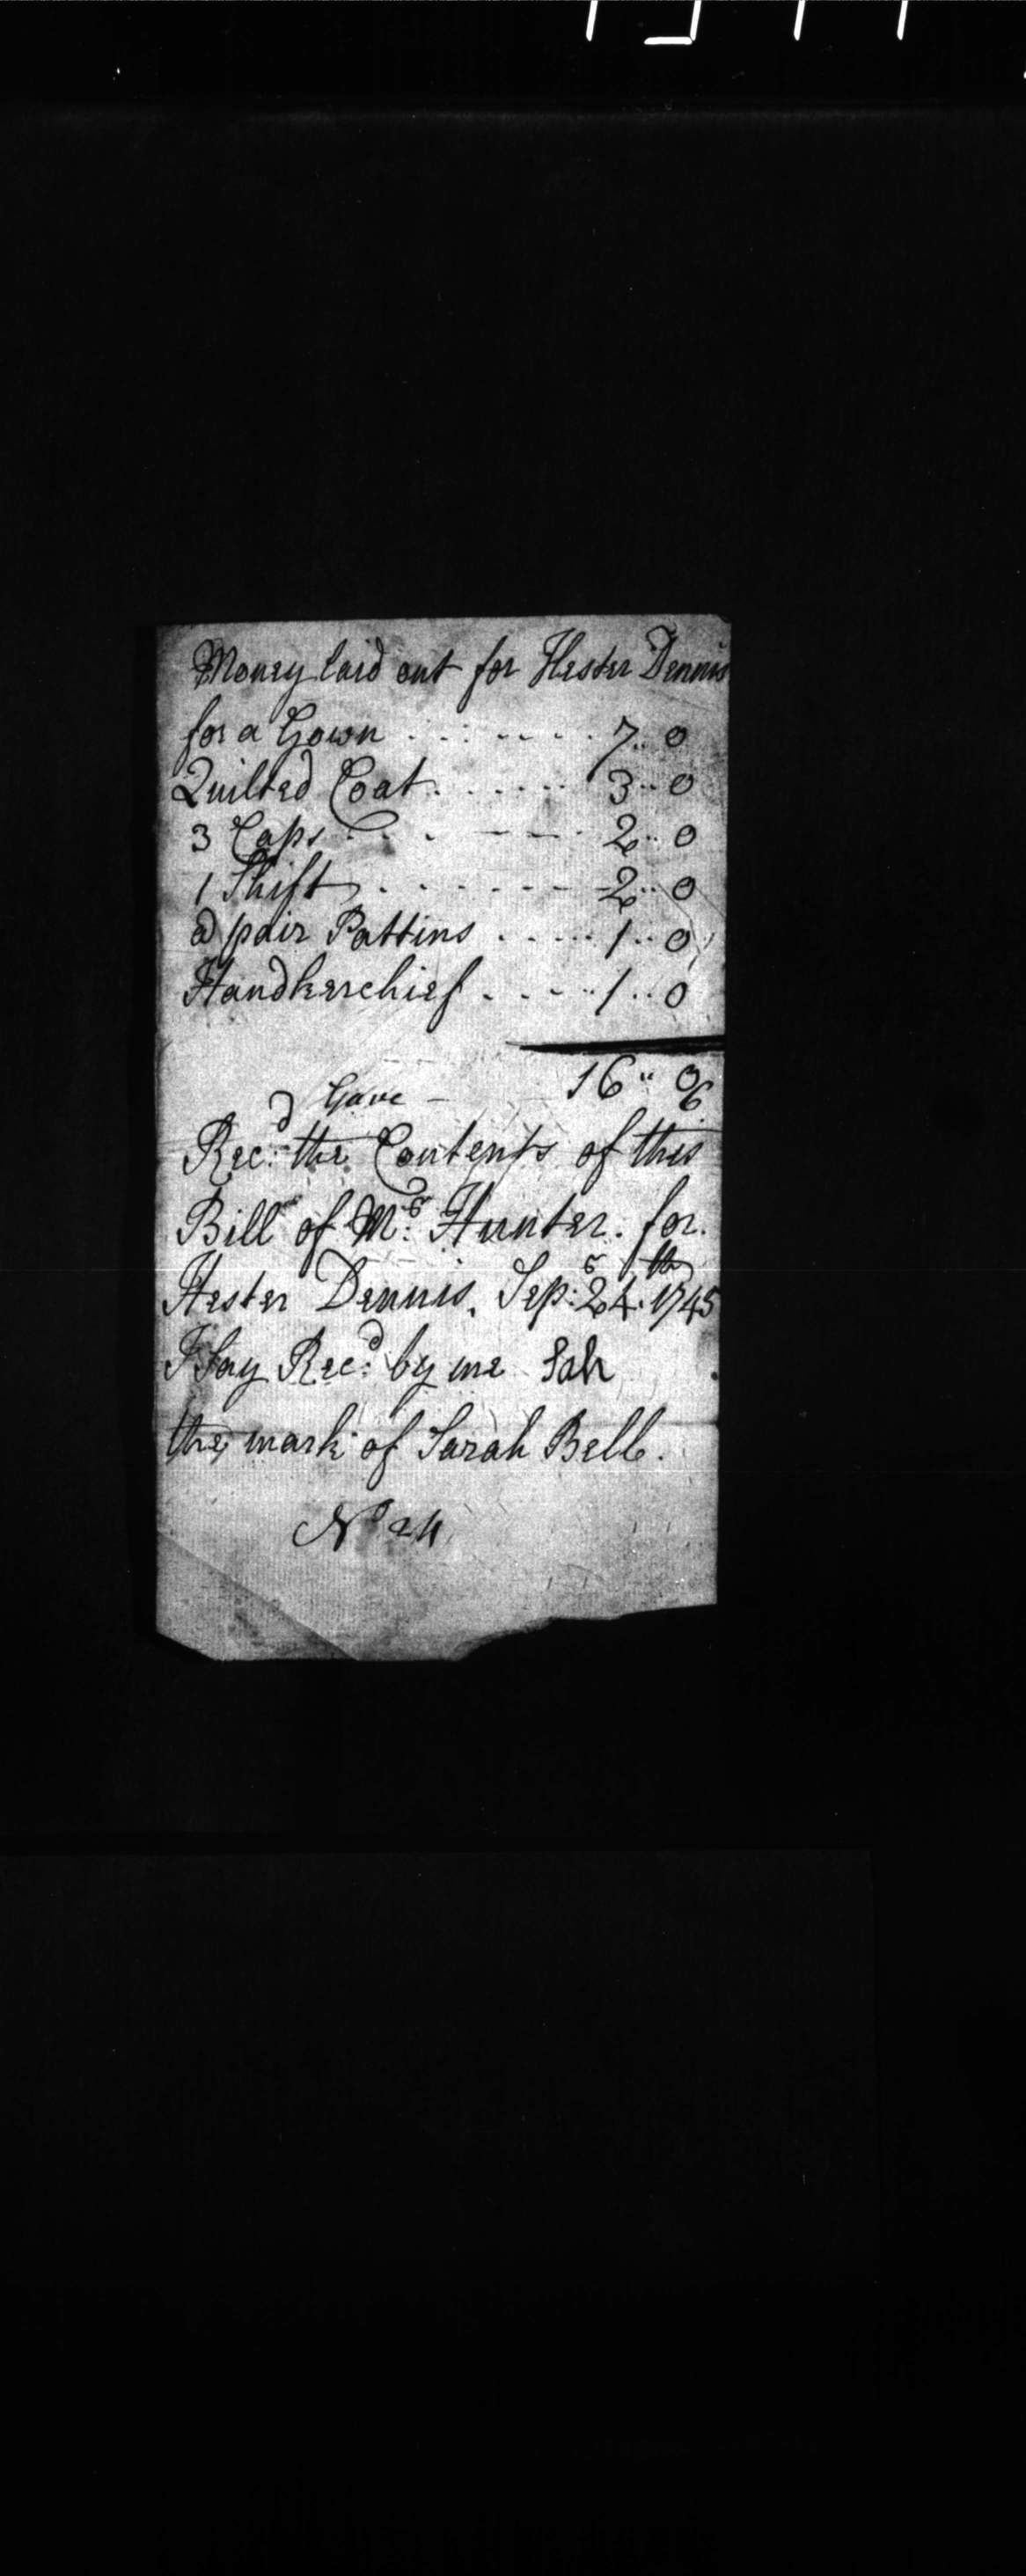 Money laid out for Hester Dennis
for a Gown . . . . . . . 7 .. 0
Quilted Coat . . . . . . 3 .. 0
3 Caps . . . - - - . 2 .. 0
1 Shift . . . . . . - - 2 .. 0
a pair Pattins . . . . . 1 .. 0
Handkerchief . . . . . 1 .. 0
16 " 0
Gave - 6
Recd: the Contents of this
Bill of Mrs: Hunter. for.
Hester Dennis. Sepr: 24th. 1745
I Say Recd: by me Sah
the mark of Sarah Bell.
No 24